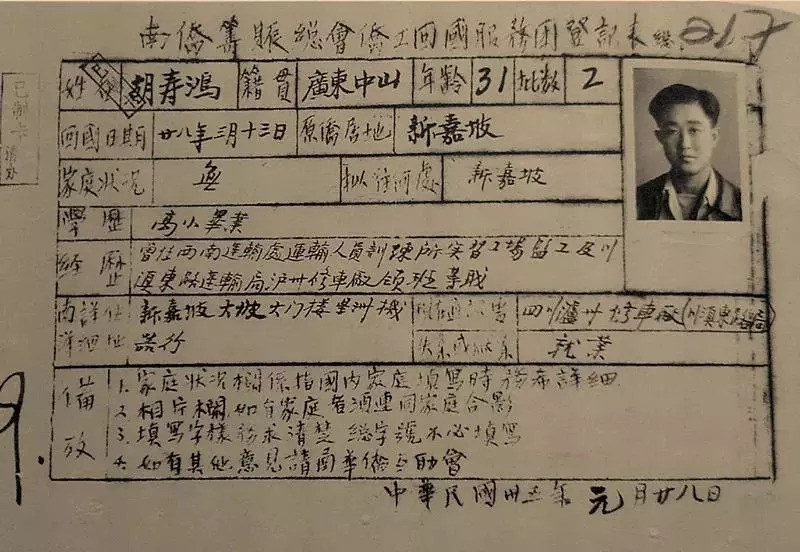 南僑籌賑總會僑工回國服務团登記表 總 217
姓名 朝寿鴻 籍貫 廣東中山 年齡 31 批数 2
回國日期 廿八年三月十三日 原僑居地 新嘉坡
家庭状况 無 拟往何處 新嘉坡
學歷 高小畢業
経歷 曾任西南運輸處運輸人員訓練所实習工場监工及川
滇東路運輸局泸州修車廠領班等职
新嘉坡大坡大门楼星洲機 四川瀘州修車廠
器行 就業
備攷 1. 家庭状况欄係指國内家庭填寫時務希詳細
2 相片欄如有家庭者須連同家庭合影
3. 填寫字樣務求清楚總字號不必填寫
4. 如有其他意見請函華僑互助會
中華民國卅五年元月廿八日
已制卡